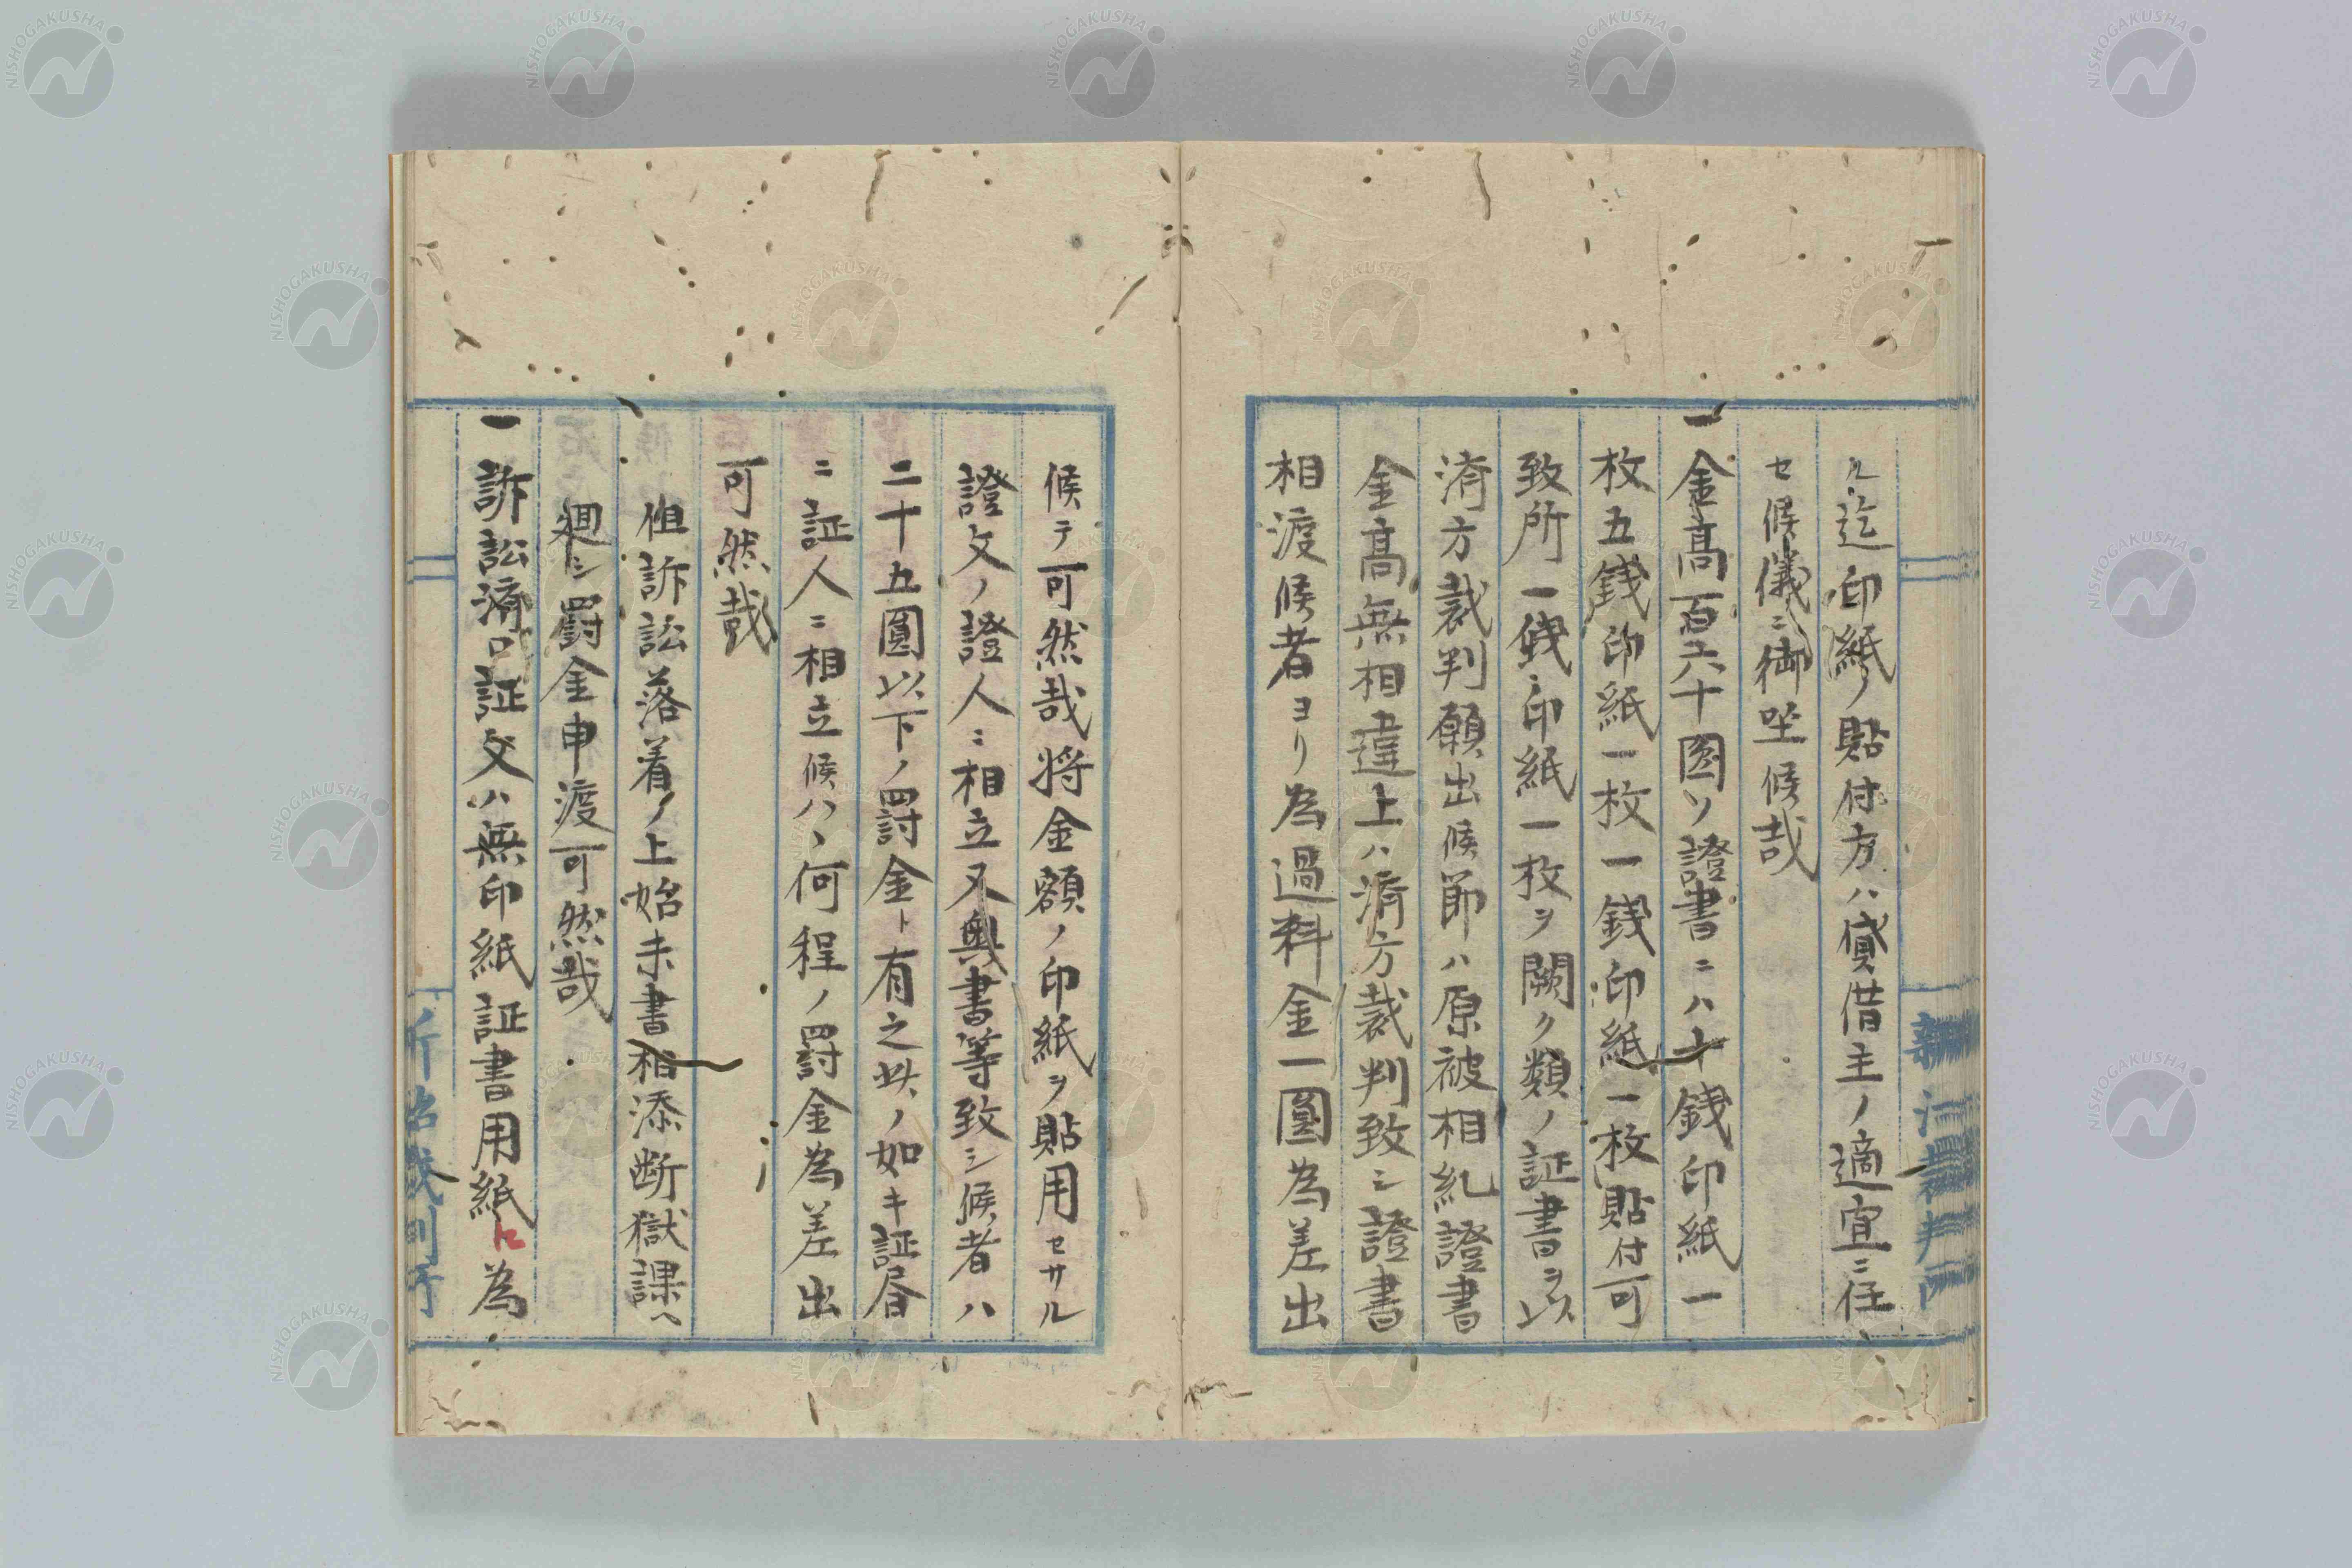 ル迄印紙ノ貼付方ハ貸借主ノ適宜ニ任
セ候儀ニ御坐候哉
一金高百六十圓ノ證書ニハ十銭印紙一
枚五銭印紙一枚一銭印紙一枚貼付可
致所一銭ノ印紙一枚ヲ闕ク類ノ証書ヲ以
済方裁判願出候節ハ原被相糺證書
金高無相違上ハ済方裁判致シ證書
相渡候者ヨリ為過料金一圓為差出
候テ可然哉将金額ノ印紙ヲ貼用セサル
證文ノ證人ニ相立又奥書等致シ候者ハ
二十五圓以下ノ罰金ト有之此ノ如キ証書
ニ証人ニ相立候ハヽ何程ノ罰金為差出
可然哉
但訴訟落着ノ上始末書相添断獄課ヘ
廻シ罰金申渡可然哉
一訴訟済口証文ハ無印紙証書用紙ニ為
NISHOGAKUSHA